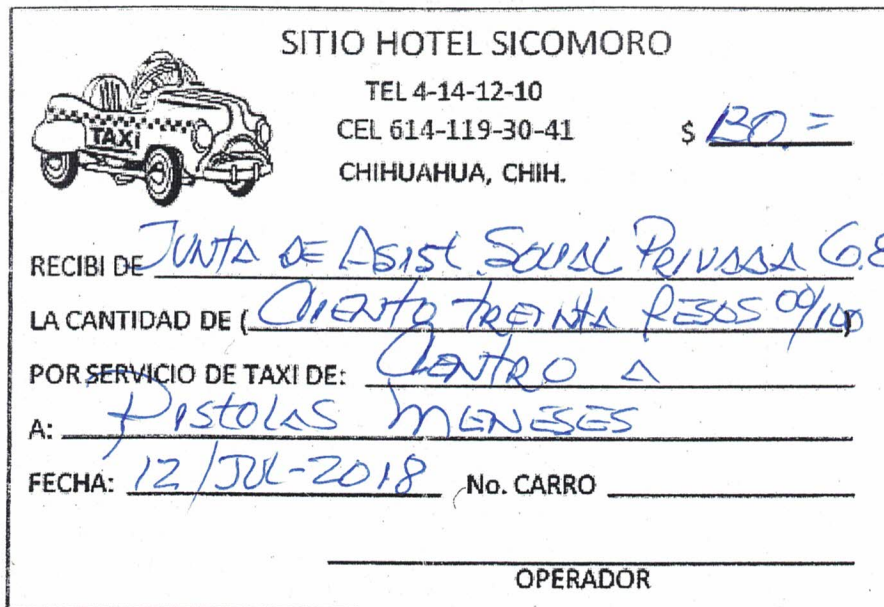 SITIO HOTEL SICOMORO
TEL 4-14-12-10
CEL 614-119-30-41
$ 130.=
CHIHUAHUA, CHIH.
TAXi
RECIBI DE JUNTA DE ASIST. SOCIAL PRIVADA G.E
LA CANTIDAD DE ( CIENTO TREINTA PESOS 00/100 )
POR SERVICIO DE TAXI DE: CENTRO A
A: PISTOLAS MENESES
FECHA: 12/JUL-2018 No. CARRO
OPERADOR